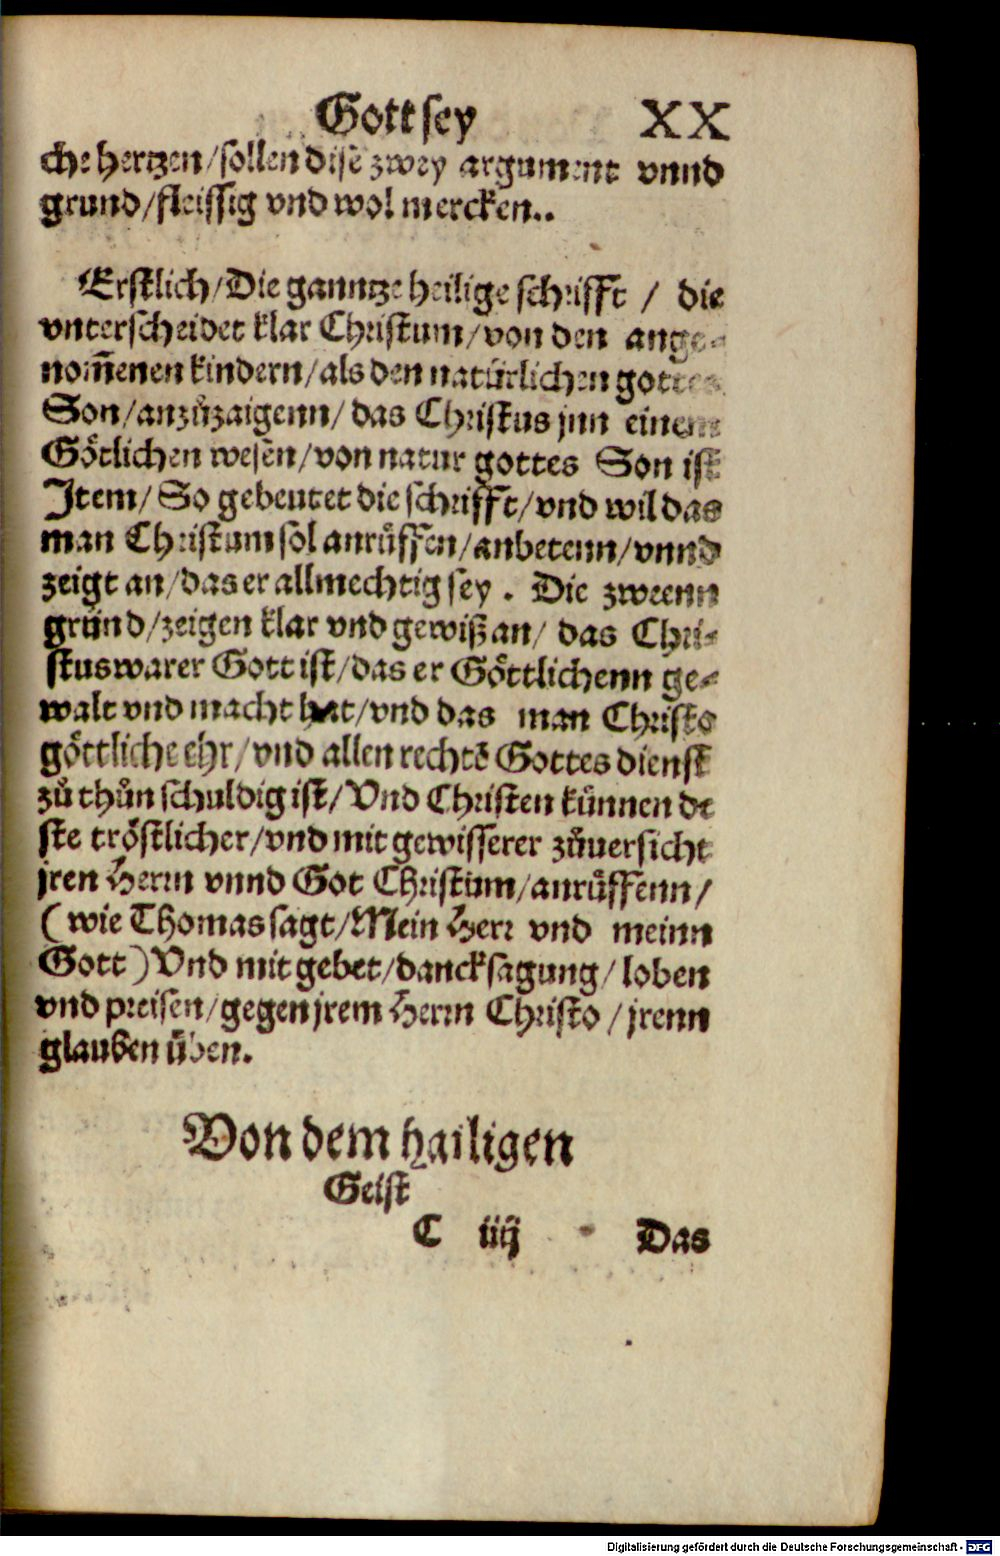 Gott sey XX
che hertzen/sollen dise zwey argument vnnd
grund/fleissig vnd wol mercken..
Erstlich/Die ganntze heilige schrifft / die
vnterscheidet klar Christum/von den ange-
nom̃enen kindern/als den natürlichen gottes
Son/anzůzaigenn/ das Christus jnn einem
Götlichen wesen/von natur gottes Son ist
Item/ So gebeutet die schrifft/vnd wil das
man Christum sol anrůffen/anbetenn/vnnd
zeigt an/das er allmechtig sey . Die zweenn
gründ/zeigen klar vnd gewiß an/ das Chri-
stus warer Gott ist/das er Göttlichenn ge-
walt vnd macht hat/vnd das man Christo
göttliche ehr/vnd allen rechtē Gottes dienst
zů thůn schuldig ist/Vnd Christen künnen de
ste tröstlicher/vnd mit gewisserer zůuersicht
jren Herrn vnnd Got Christum/anrůffenn/
(wie Thomas sagt/Mein Herr vnd meinn
Gott)Vnd mit gebet/dancksagung/loben
vnd preisen/gegen jrem Herrn Christo/jrenn
glauben üben.
Von dem hailigen
Geist
C iiij Das
Digitalisierung gefördert durch die Deutsche Forschungsgemeinschaft - DFG